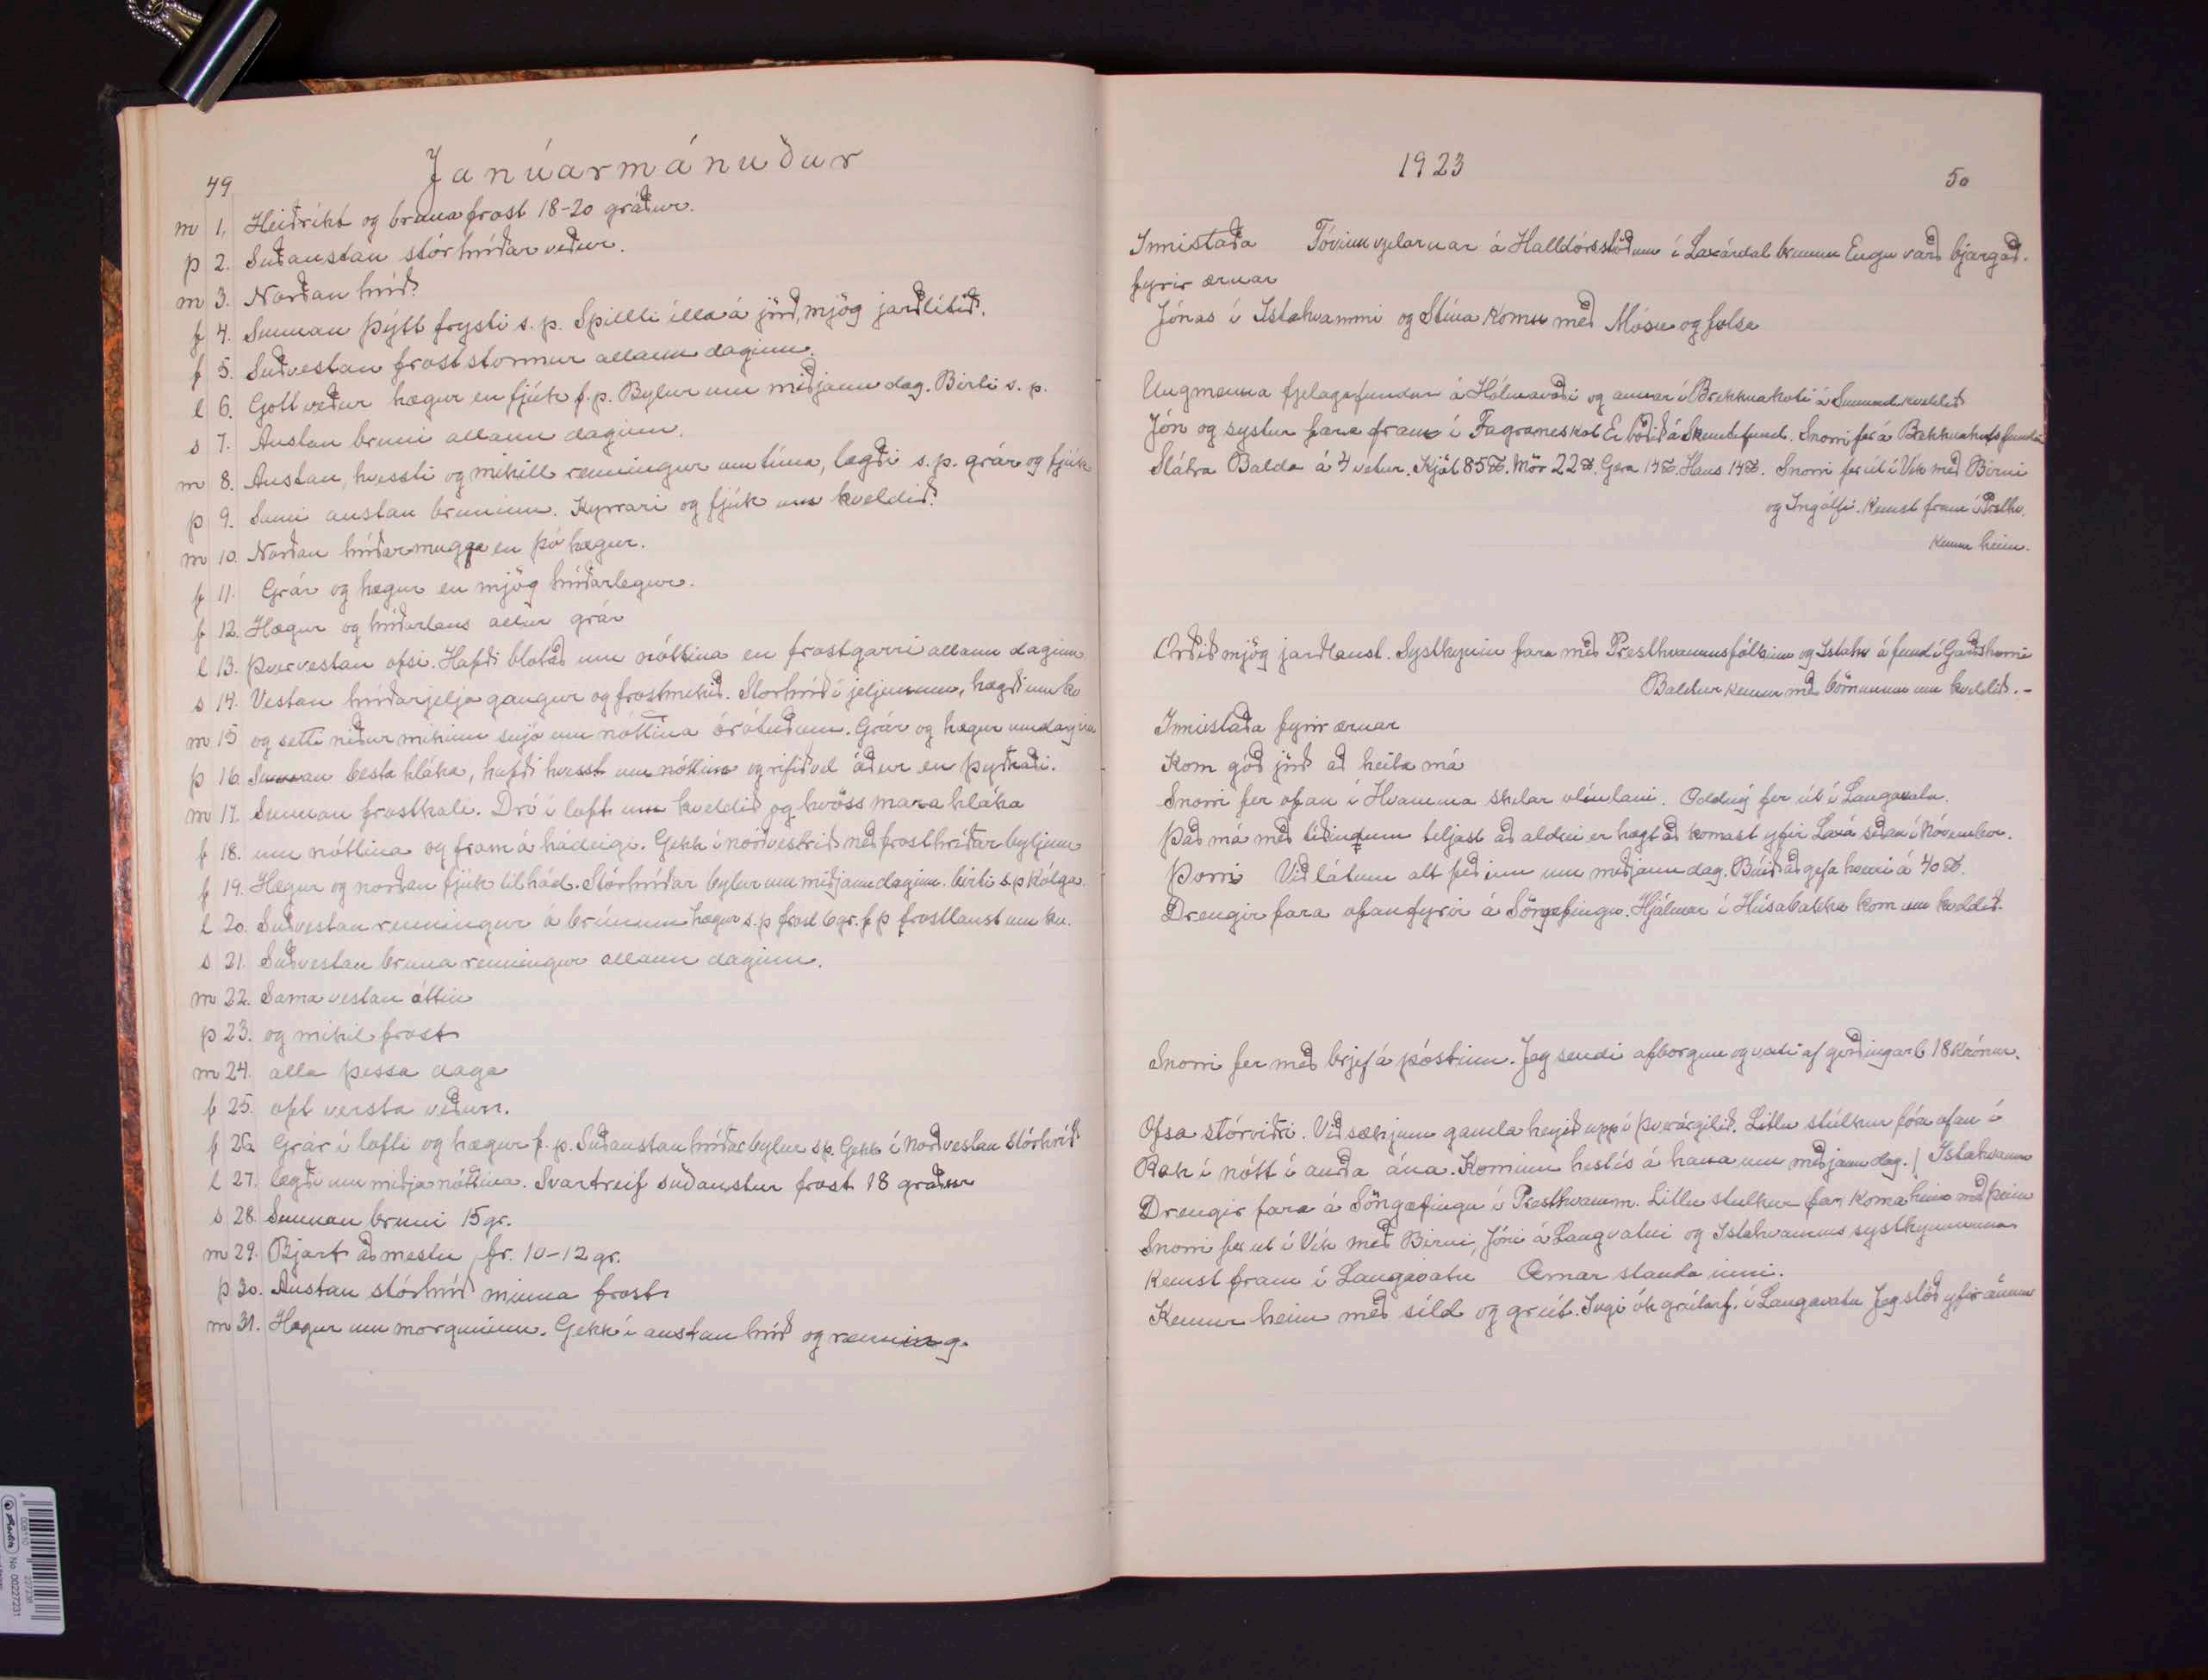 49
Janúarmánuður
m 1. Heiðríkt og bruna frost 18-20 gráður.
þ 2. Suðaustan stórhríðar veður.
m 3. Norðan hríð.
f 4. Sunnan þýtt frysti s. p. Spillti illa á jörð, mjög jarðlítið.
f 5. Suðvestan froststormur allann daginn.
l 6. Gott veður hægur en fjúk f. p. Bylur um miðjann dag. Birti s. p.
s 7. Austan bruni allann daginn.
m 8. Austan, hvessti og mikill renningur um tíma, lægði s. p. grár og fjúk
þ 9. Sami austan bruninn. Kyrrari og fjúk um kveldið.
m 10. Norðan hríðarmugga en þó hægur.
f 11. Grár og hægur en mjög hríðarlegur.
f 12. Hægur og hríðarlaus allur grár
l 13. Þvervestan ofsi. Hafði blotað um nóttina en frostgarri allann daginn
s 14. Vestan hríðarjelja gangur og frostmikið. Stórhríð í jeljunum, hægði um kv
m 15 og setti niður mikinn snjó um nóttina órótuðum. Grár og hægur um daginn
þ 16. Sunnan besta hláka, hafði hvesst um nóttina og rifið vel áður en þyðnaði.
m 17. Sunnan frostkali. Dró í loft um kveldið og hvöss mara hláka
f 18. um nóttina og fram á hádeigi. Gekk í norðvestrið með frosthríðar byljum
f 19. Hægur og norðan fjúk til hád. Stórhríðar bylur um miðjann daginn. birti s.p Kólga.
l 20. Suðvestan renningur á brúnum hægur s.p frost 6gr. f p frostlaust um kv.
s 21. Suðvestan bruna renningur allann daginn.
m 22. Sama vestan áttin
þ 23. og mikil frost
m 24. alla þessa daga
f 25. oft versta veður.
f 26 Grár í lofti og hægur f. p. Suðaustan hríðar bylur s.p. Gekk í Norðvestan stórhríð
l 27. lægði um miðja nóttina. Svartreif suðaustur frost 18 gráður
s 28 Sunnan bruni 15 gr.
m 29. Bjart að mestu, fr. 10-12 gr.
þ 30. Austan stórhríð minna frost
m 31. Hægur um morguninn. Gekk í austan hríð og renning.
1923
50
Innistaða Tóvinnvjelarnar á Halldórsstöðum í Laxárdal brunnu Engu varð bjargað.
fyrir ærnar
Jónas í Ystahvammi og Stína komu með Mósu og folse
Ungmenna fjelagsfundur á Hólmavaði og annar í Brekknakoti á Sunnud. kveldið
Jón og systur fara fram í Fagraneskot Er boðið á Skemtifund. Snorri fer á Brekknakots fundin
Slátra Balda á 4 vetur. Kjöt 85 ℔. Mör 22 ℔. Gæra 14 ℔. Haus 14 ℔. Snorri fer út í Vík með Birni
og Ingólfi. Kemst fram í Presthv.
Kemur heim.
Orðið mjög jarðlaust. Systkynin fara með Presthvammsfólkinu og Ystahv á fund í Garðshorni
Baldur kemur með börnunum um kveldið. -
Innistaða fyrir ærnar
Kom góð jörð að heita má
Snorri fer ofan í Hvamma skilar olíuláni. Oddný fer út í Langavatn.
Það má með tíðindum teljast að aldrei er hægt að komast yfir Laxá síðan í Nóvember.
Þorri Við látum alt fjeð inn um miðjann dag. Búið að gefa henni á 40 ℔.
Drengir fara ofanfyrir á Söngæfingu. Hjálmar í Húsabakka kom um kveldið.
Snorri fer með brjef á póstinn. Jeg sendi afborgun og vexti af girðingarl 18 krónur.
Ofsa stórviðri. Við sækjum gamla heyið upp í þverárgilið. Litlu stúlkur fóru ofan í
Rak í nótt í auða ána. Kominn hestís á hana um miðjann dag. | Ystahvamm
Drengir fara á Söngæfingu í Presthvamm. Litlu stulkur far koma heim með þeim
Snorri fer ut í Vík með Birni, Jóni á Langvatni og Ystahvamms systkynunum
Kemst fram í Langavatn Ærnar standa inni.
Kemur heim með síld og grút. Ingi ók grútarf. í Langavatn Jeg stóð yfir ánum